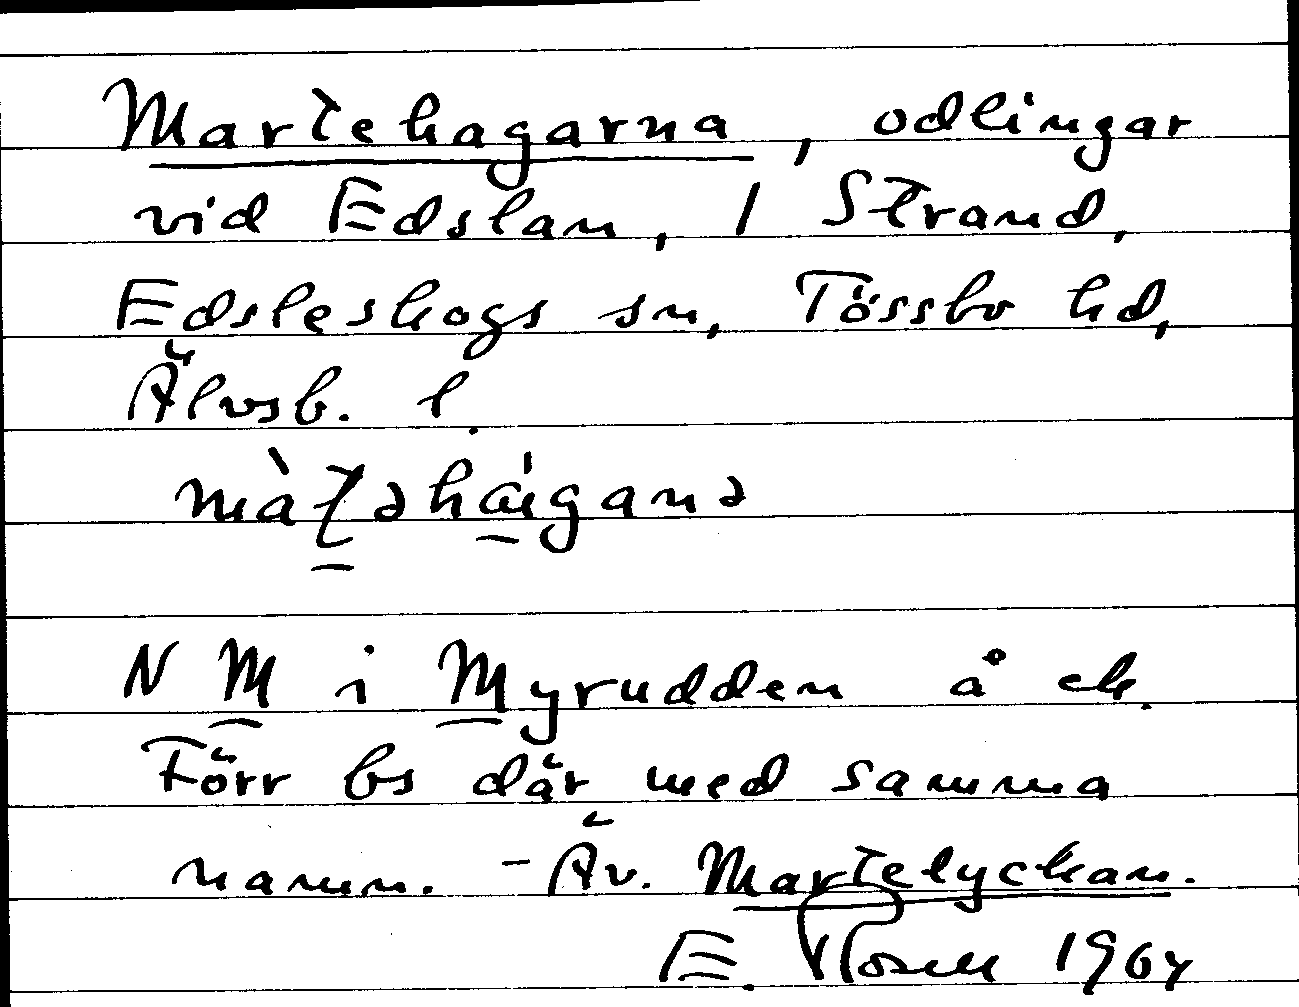 Martehagarna, odlingar
vid Edslan, 1 Strand,
Edsleskogs sn, Tössbo hd,
Älvsb. l.
N M i Myrudden å ek.
Förr bs där med samma
namn. - Äv. Martelyckan.
E. 1964